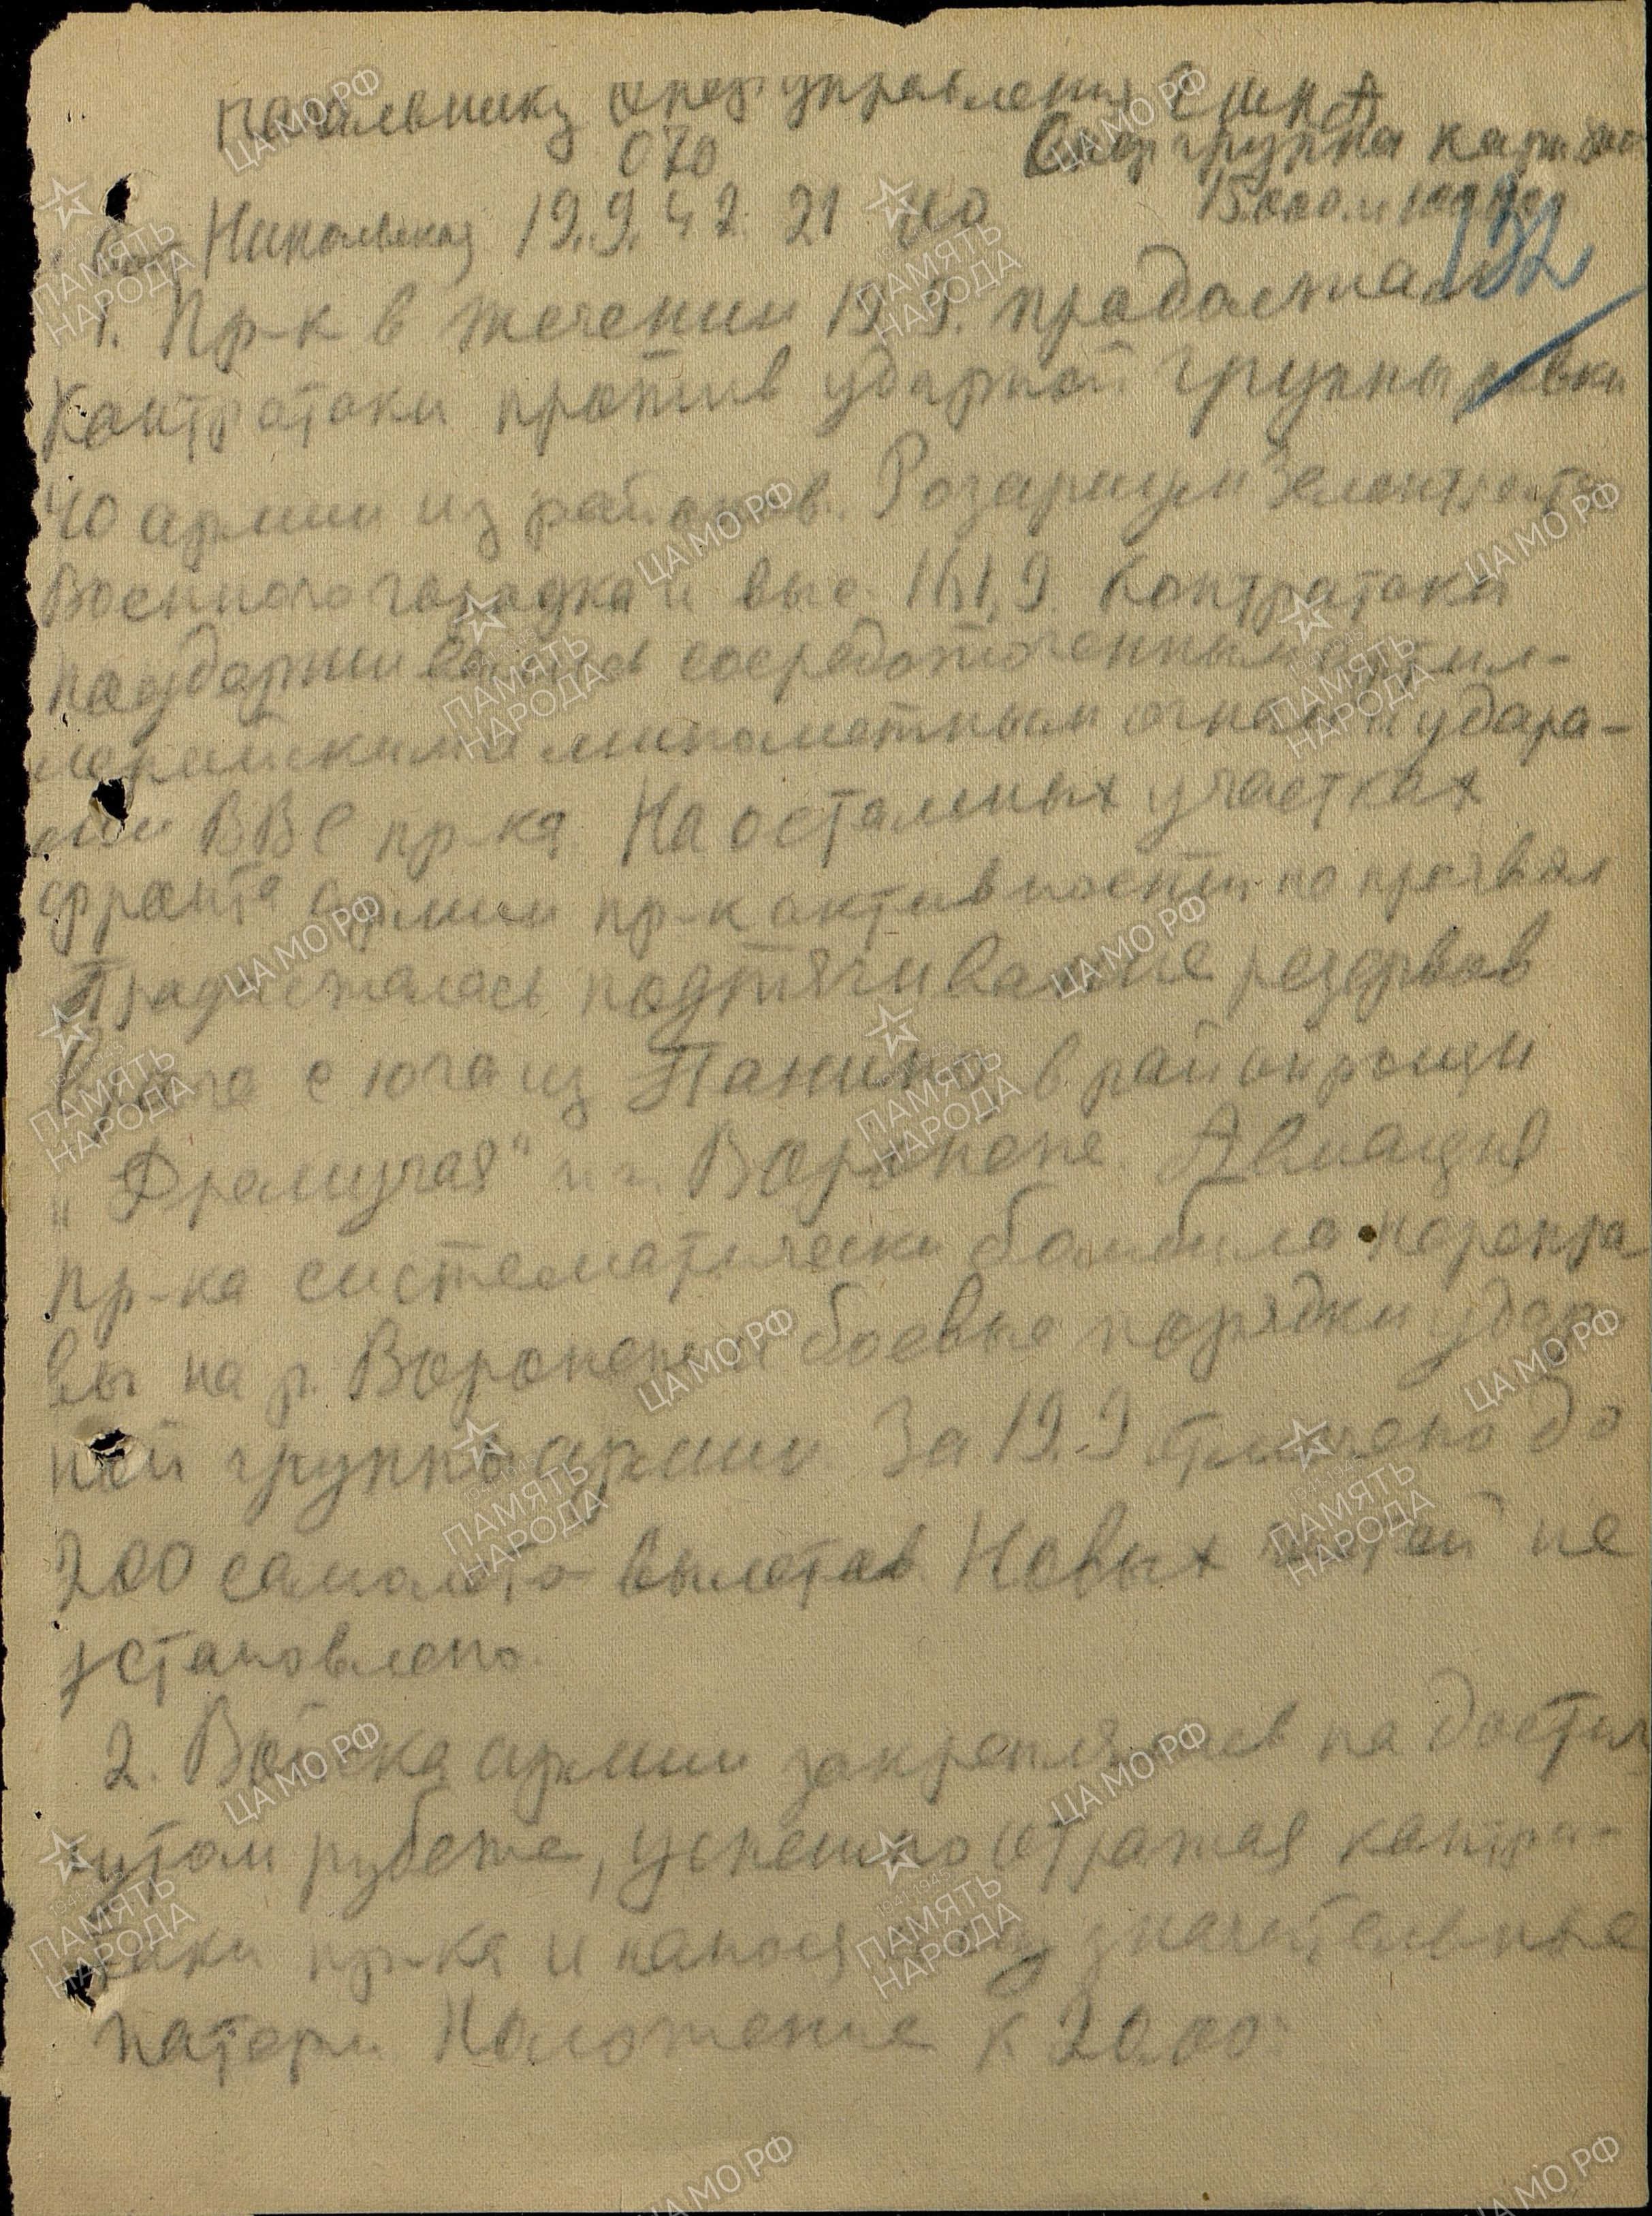 Начальнику опер. управления
070
группа карт
Никольская 19.9.42. 21
132
1. Пр-к в течении 19.9. продолжал
контратаки против ударной группы
40 армии из районов. Розариум
Военного городка и выс. 161,9. Контратака
сосредоточенным артил-
минометным огнем и удара-
ми ВВС пр-ка. На остальных участках
фронта армии пр-к активности не проявлял
Продолжалась подтягивание резервов
врага с юга из Панино, в район рощи
„Фремучая" и г. Воронеже. Авиация
пр-ка систематически бомбила перепра
вы на р. Воронеж и боевые порядки удар
ной группы армии. За 19.9 отмечено до
200 самолето-вылетов. Новых частей не
установлено.
2. Войска армии закреплялась на достиг
нутом рубеже, успешно отражая контра-
таки пр-ка и нанося ему значительные
потери. Положение к 20.00: